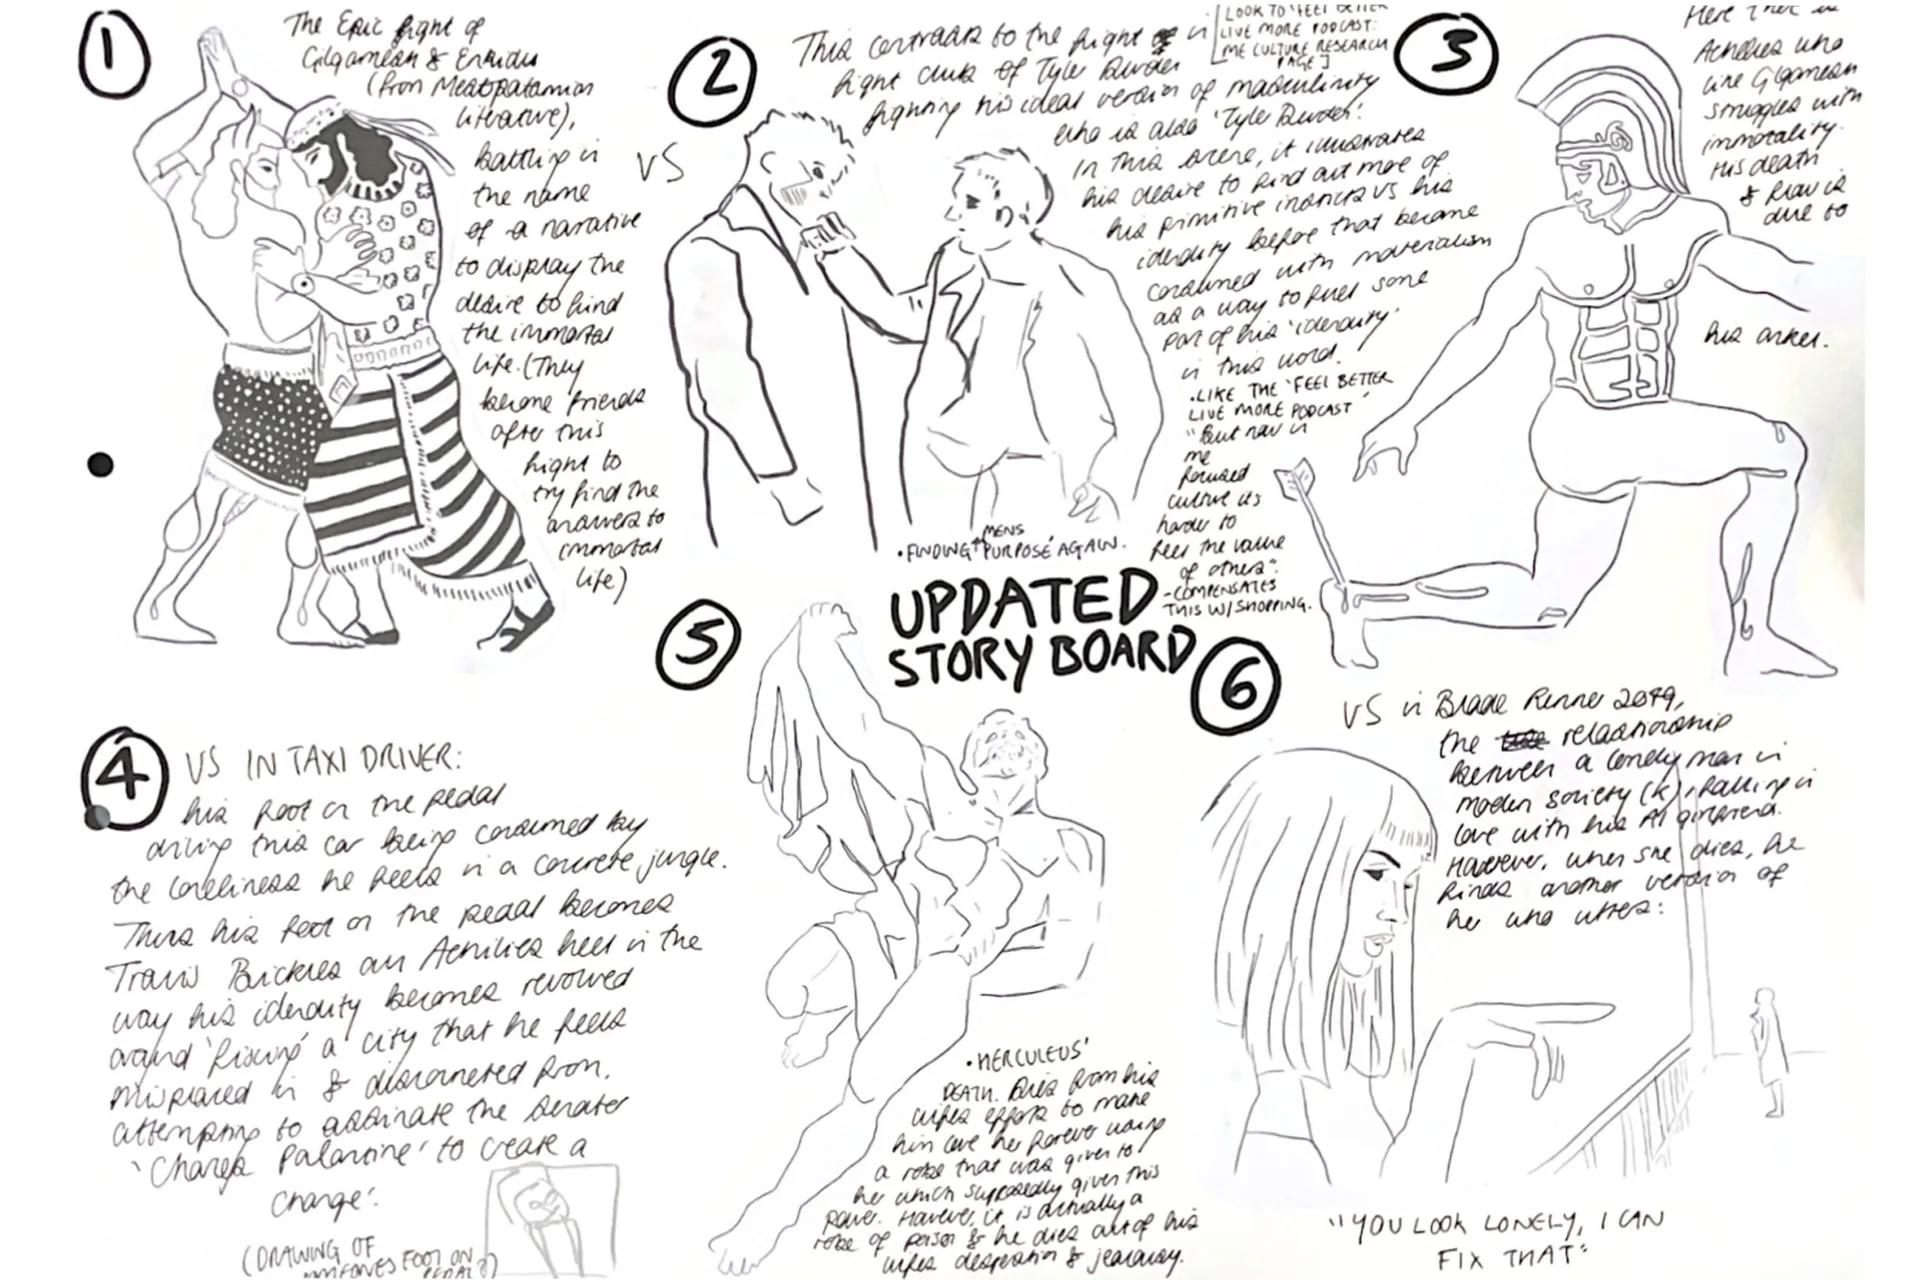 1
The Epic fight of
Gilgamesh & Enkidu
(from Mesopatamian
literature),
battling in
the name
of a narrative
to display the
desire to find
the immortal
life. (They
become friends
after this
fight to
try find the
answers to
immortal
life)
VS
2
This contrasts to the fight in
fight club of Tyler Durden
fighting his ideal version of masculinity
who is also 'Tyler Durden'.
In this scene, it illustrates
his desire to find out more of
his primitive instincts vs his
identity before that became
consumed with materialism
as a way to fuel some
part of his 'identity'
in this world.
[LOOK TO 'FEEL BETTER
LIVE MORE PODCAST:
ME CULTURE RESEARCH
PAGE]
• LIKE THE 'FEEL BETTER
LIVE MORE PODCAST'
"But now in
me
focused
culture its
harder to
feel the value
of others".
- COMPENSATES
THIS W/ SHOPPING.
• FINDING MENS
'PURPOSE' AGAIN.
3
Here there is
Achilles who
like Gilgamesh
struggles with
immortality.
His death
& flaw is
due to
his ankel.
UPDATED
STORY BOARD
4
VS IN TAXI DRIVER:
his foot on the pedal
driving this car being consumed by
the loneliness he feels in a concrete jungle.
Thus his foot on the pedal becomes
Travis Bickles an Achilles heel in the
way his identity becomes revolved
around 'fixing' a city that he feels
misplaced in & disconnected from.
attempting to assinate the senater
'Charles Palantine' to create a
change'.
(DRAWING OF
FOOT ON
PEDAL?)
5
• HERCULEUS'
DEATH. Dies from his
wifes efforts to make
him love her forever using
a robe that was given to
her which supposedly gives this
power. However, it is actually a
robe of poison & he dies out of his
wifes desperation & jealousy.
6
VS in Blade Runner 2049,
the relationship
between a lonely man in
modern society (K), falling in
love with his AI girlfriend.
However, when she dies, he
finds another version of
her who utters:
"YOU LOOK LONELY, I CAN
FIX THAT"